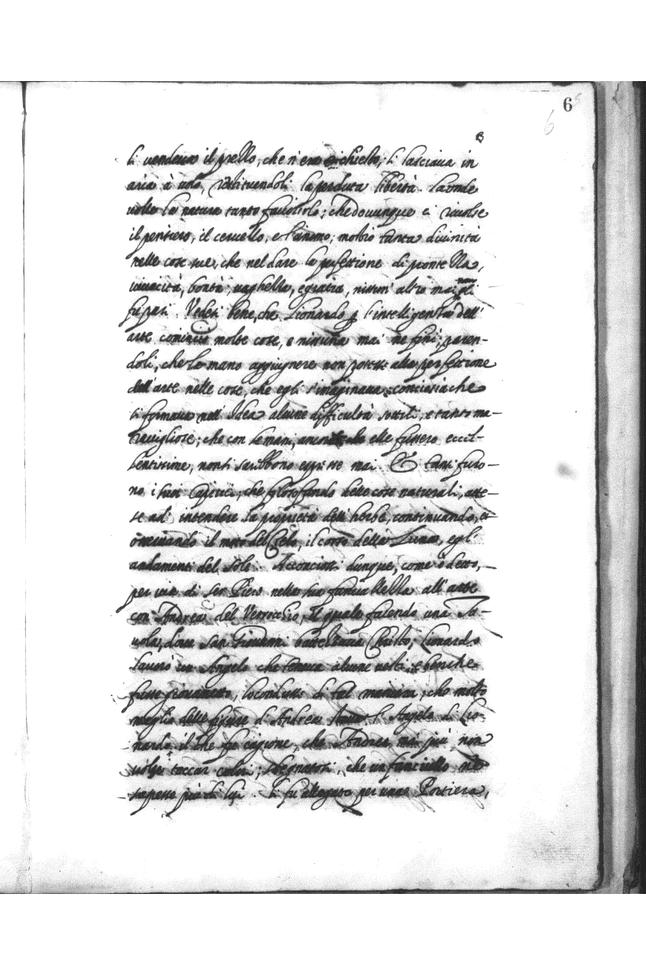 6
li vendeva il prezzo, che n'era chiesto, li lasciava in
aria à volo, restituendoli la perduta libertà. Laonde
volle la natura tanto favorirlo; che dovunque ei rivolse
il pensiero, il cervello, e l'animo; mostrò tanta divinità
nelle cose sue, che nel dare la perfettione di prontezza,
vivacità, bontà, vaghezza, e gratia, nissun' altro mai gli
fu pari. Vedesi bene, che Lionardo p l'intelligenza dell'
arte cominciò molte cose, e nissuna mai ne finì, paren-
doli, che la mano aggiugnere non potesse alla perfettione
dell'arte nelle cose, che egli s'imaginava, conciosiache
si formava nell' Idea alcune difficultà sottili, e tanto ma-
ravigliose; che con le mani, ancora che elle fussero eccel-
lentissime, non si sarebbono espresse mai. Et tanti furo-
no i suoi capricci, che filosofando delle cose naturali, atte-
se ad intendere la proprietà dell' herbe, continuando, et
osservando il moto del Cielo, il corso della Luna, e gl'
andamenti del Sole. Acconciossi dunque, come è detto,
per via di ser Piero nella sua fanciullezza all' arte
con Andrea del Verrocchio, il quale facendo una Ta-
vola, dove San Giovanni battezzava Christo, Lionardo
lavorò un Angelo che teneva alcune vesti; e benche
fusse giovanetto, lo condusse di tal maniera, che molto
meglio delle figure d'Andrea stava l'Angelo di Lio-
nardo il che fu cagione, che Andrea mai più non
volse toccar colori; sdegnatosi, che un fanciullo ne
sapesse più di lui. Li fu allogato per una Portiera,